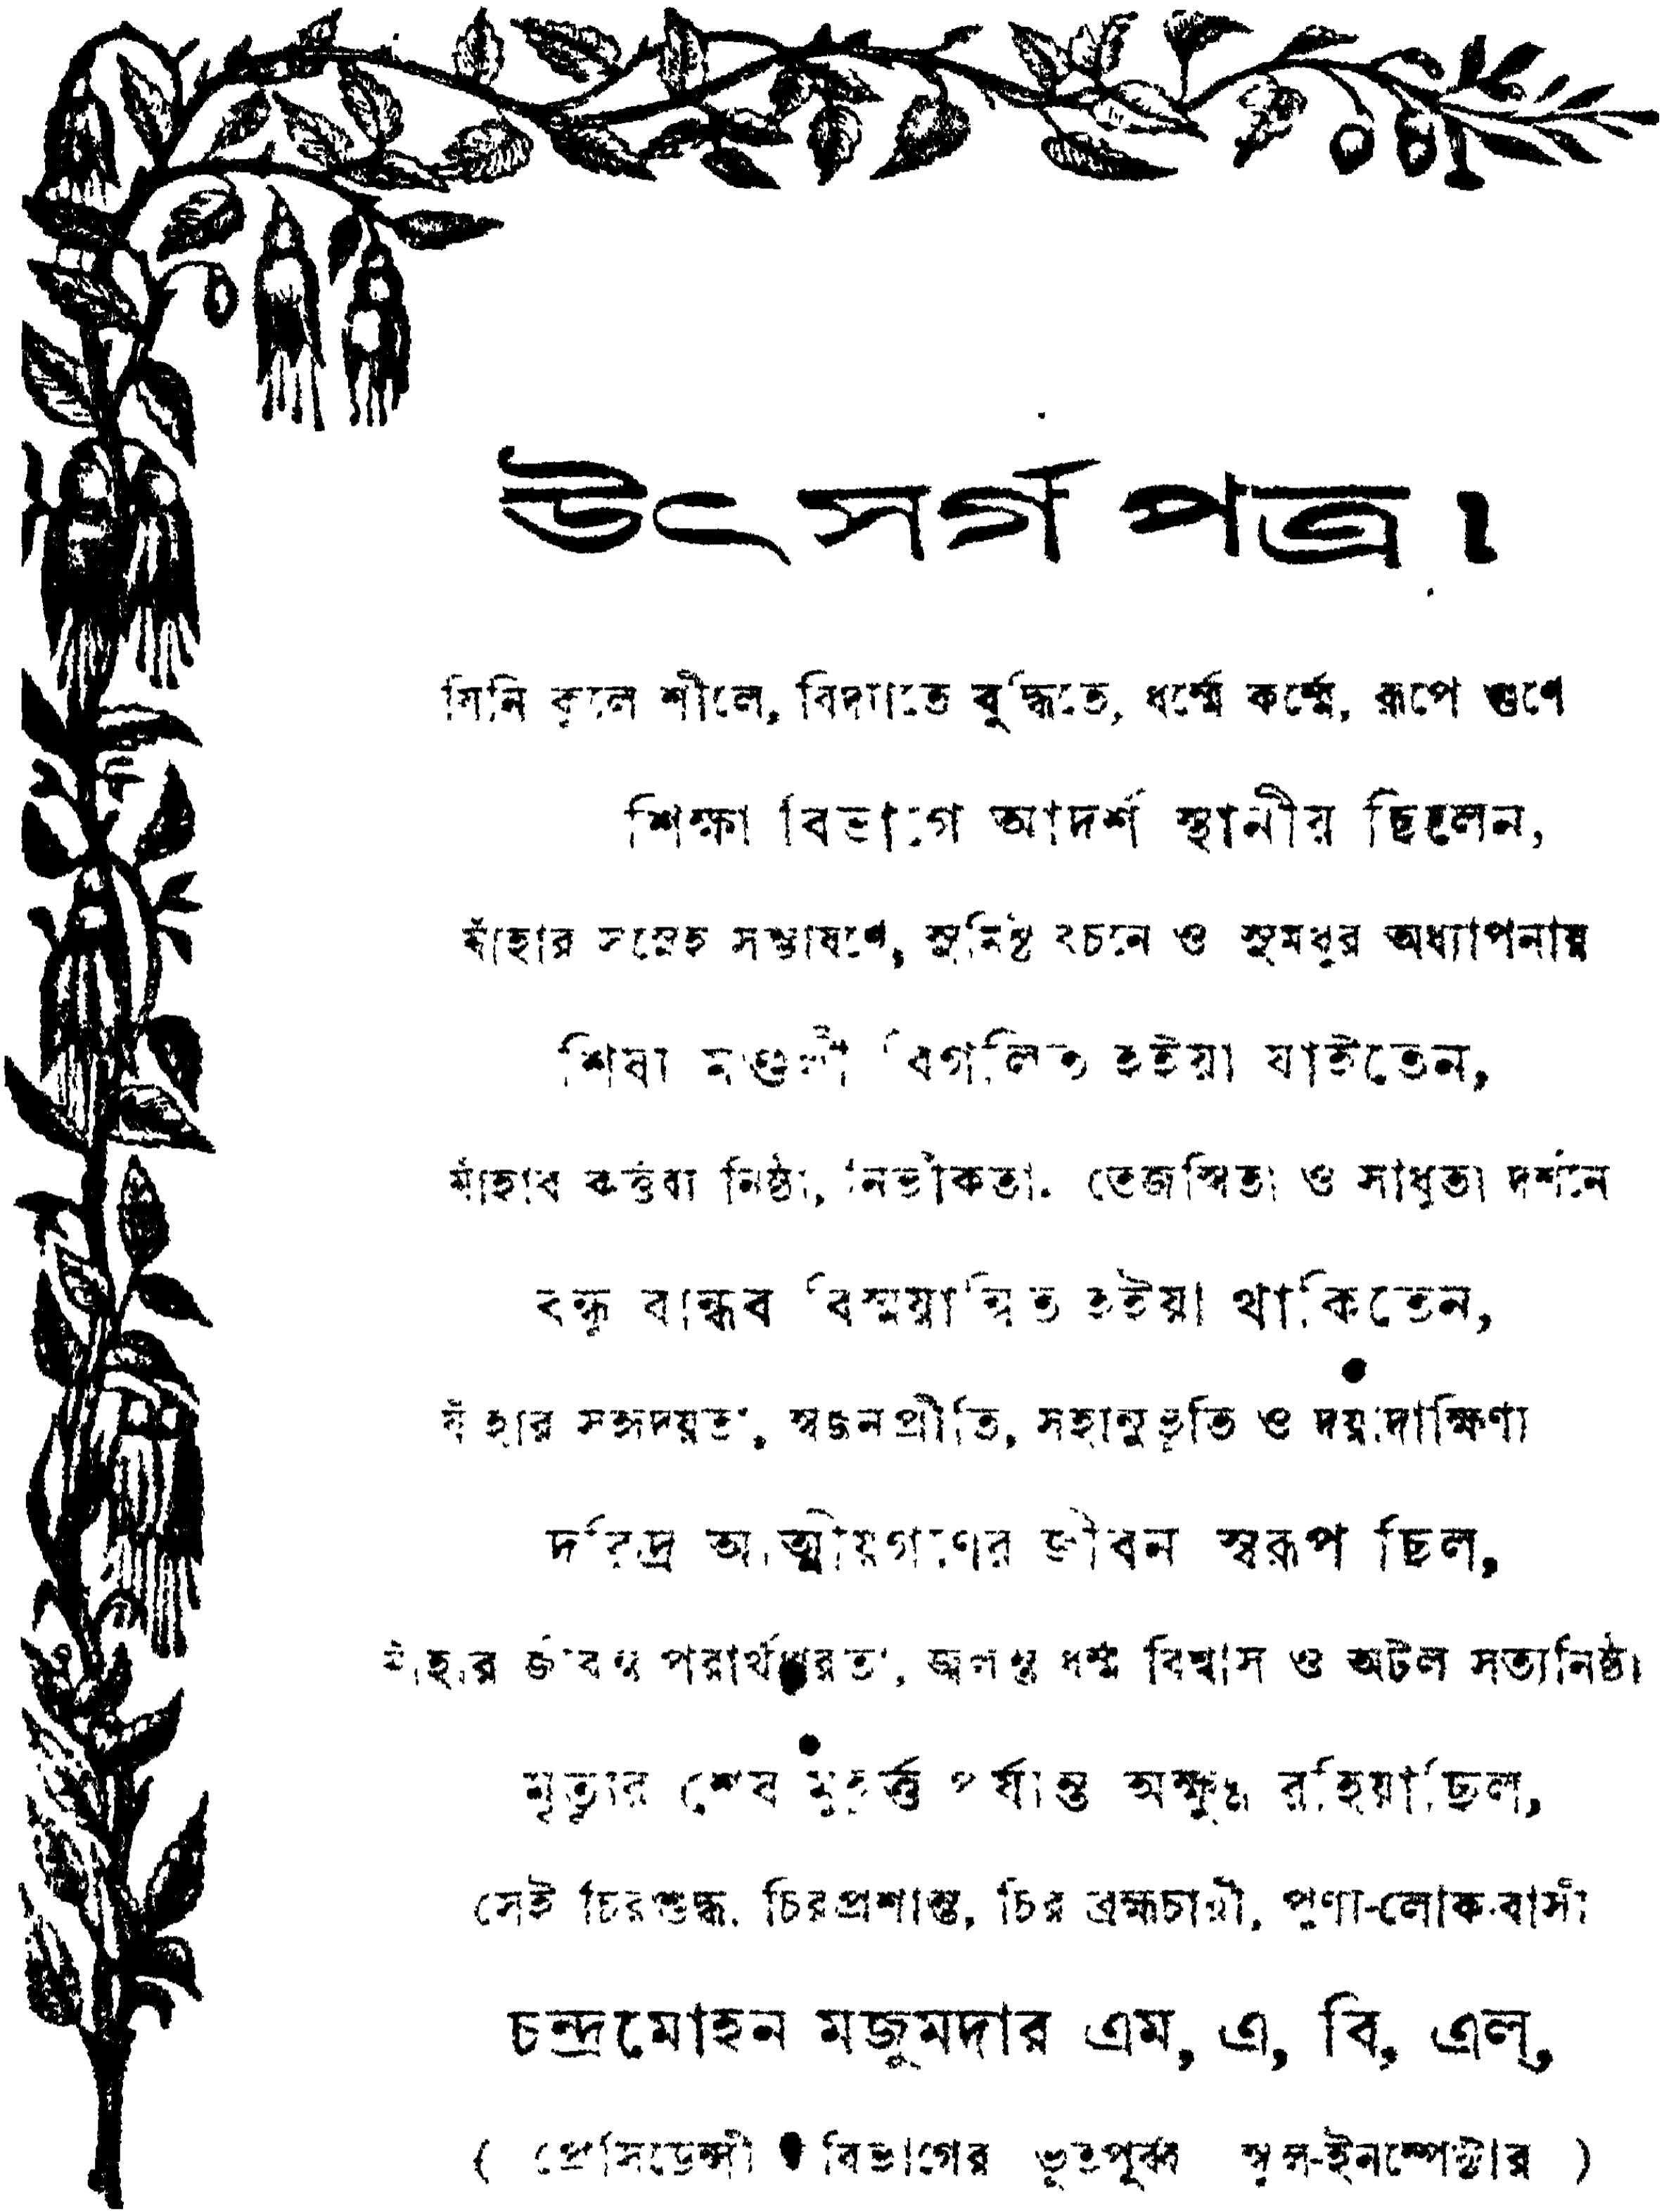 উৎসর্গ পত্র।
যিনি কুলে শীলে, বিদ্যাতে বুদ্ধিতে, ধর্ম্মে কর্ম্মে, রূপে গুণে
শিক্ষা বিভাগে আদর্শ স্থানীয় ছিলেন,
যাঁহার সস্নেহ সম্ভাষণে, সুমিষ্ট বচনে ও সুমধুর অধ্যাপনায়
শিষ্য মণ্ডলী বিগলিত হইয়া যাইতেন,
যাঁহার কর্ত্তব্য নিষ্ঠা, নির্ভীকতা, তেজস্বিতা ও সাধুতা দর্শনে
বন্ধু বান্ধব বিস্ময়ান্বিত হইয়া থাকিতেন,
যাঁহার সহৃদয়তা, স্বজনপ্রীতি, সহানুভূতি ও দয়াদাক্ষিণ্য
দরিদ্র আত্মীয়গণের জীবন স্বরূপ ছিল,
যাঁহার জীবন্ত পরার্থপরতা, জ্বলন্ত ধর্ম্ম বিশ্বাস ও অটল সত্যনিষ্ঠা
মৃত্যুর শেষ মুহূর্ত্ত পর্য্যন্ত অক্ষুণ্ণ রহিয়াছিল,
সেই চিরশুদ্ধ, চিরপ্রশান্ত, চির ব্রহ্মচারী, পুণ্য-লোক-বাসী
চন্দ্রমোহন মজুমদার এম, এ, বি, এল্,
( প্রেসিডেন্সী বিভাগের ভূতপূর্ব্ব স্কুল-ইনস্পেক্টার )